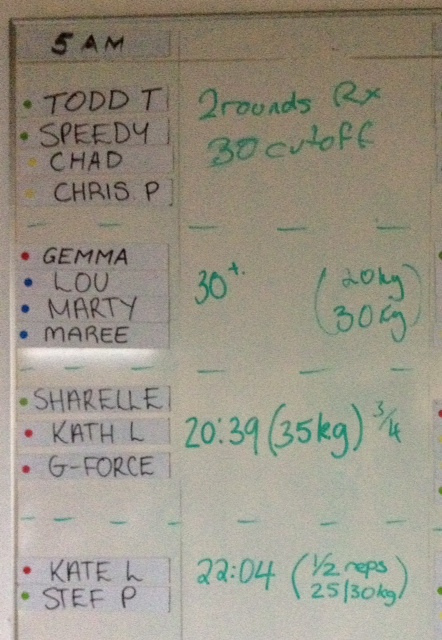 5 AM
TODD T
SPEEDY
CHAD
CHRIS P
2 rounds Rx
30 cutoff
GEMMA
LOU
MARTY
MAREE
30+.
(20kg
30kg)
SHARELLE
KATH L
G-FORCE
20:39 (35kg) 3/4
KATE L
STEF P
22:04 (1/2 reps
25/30kg)